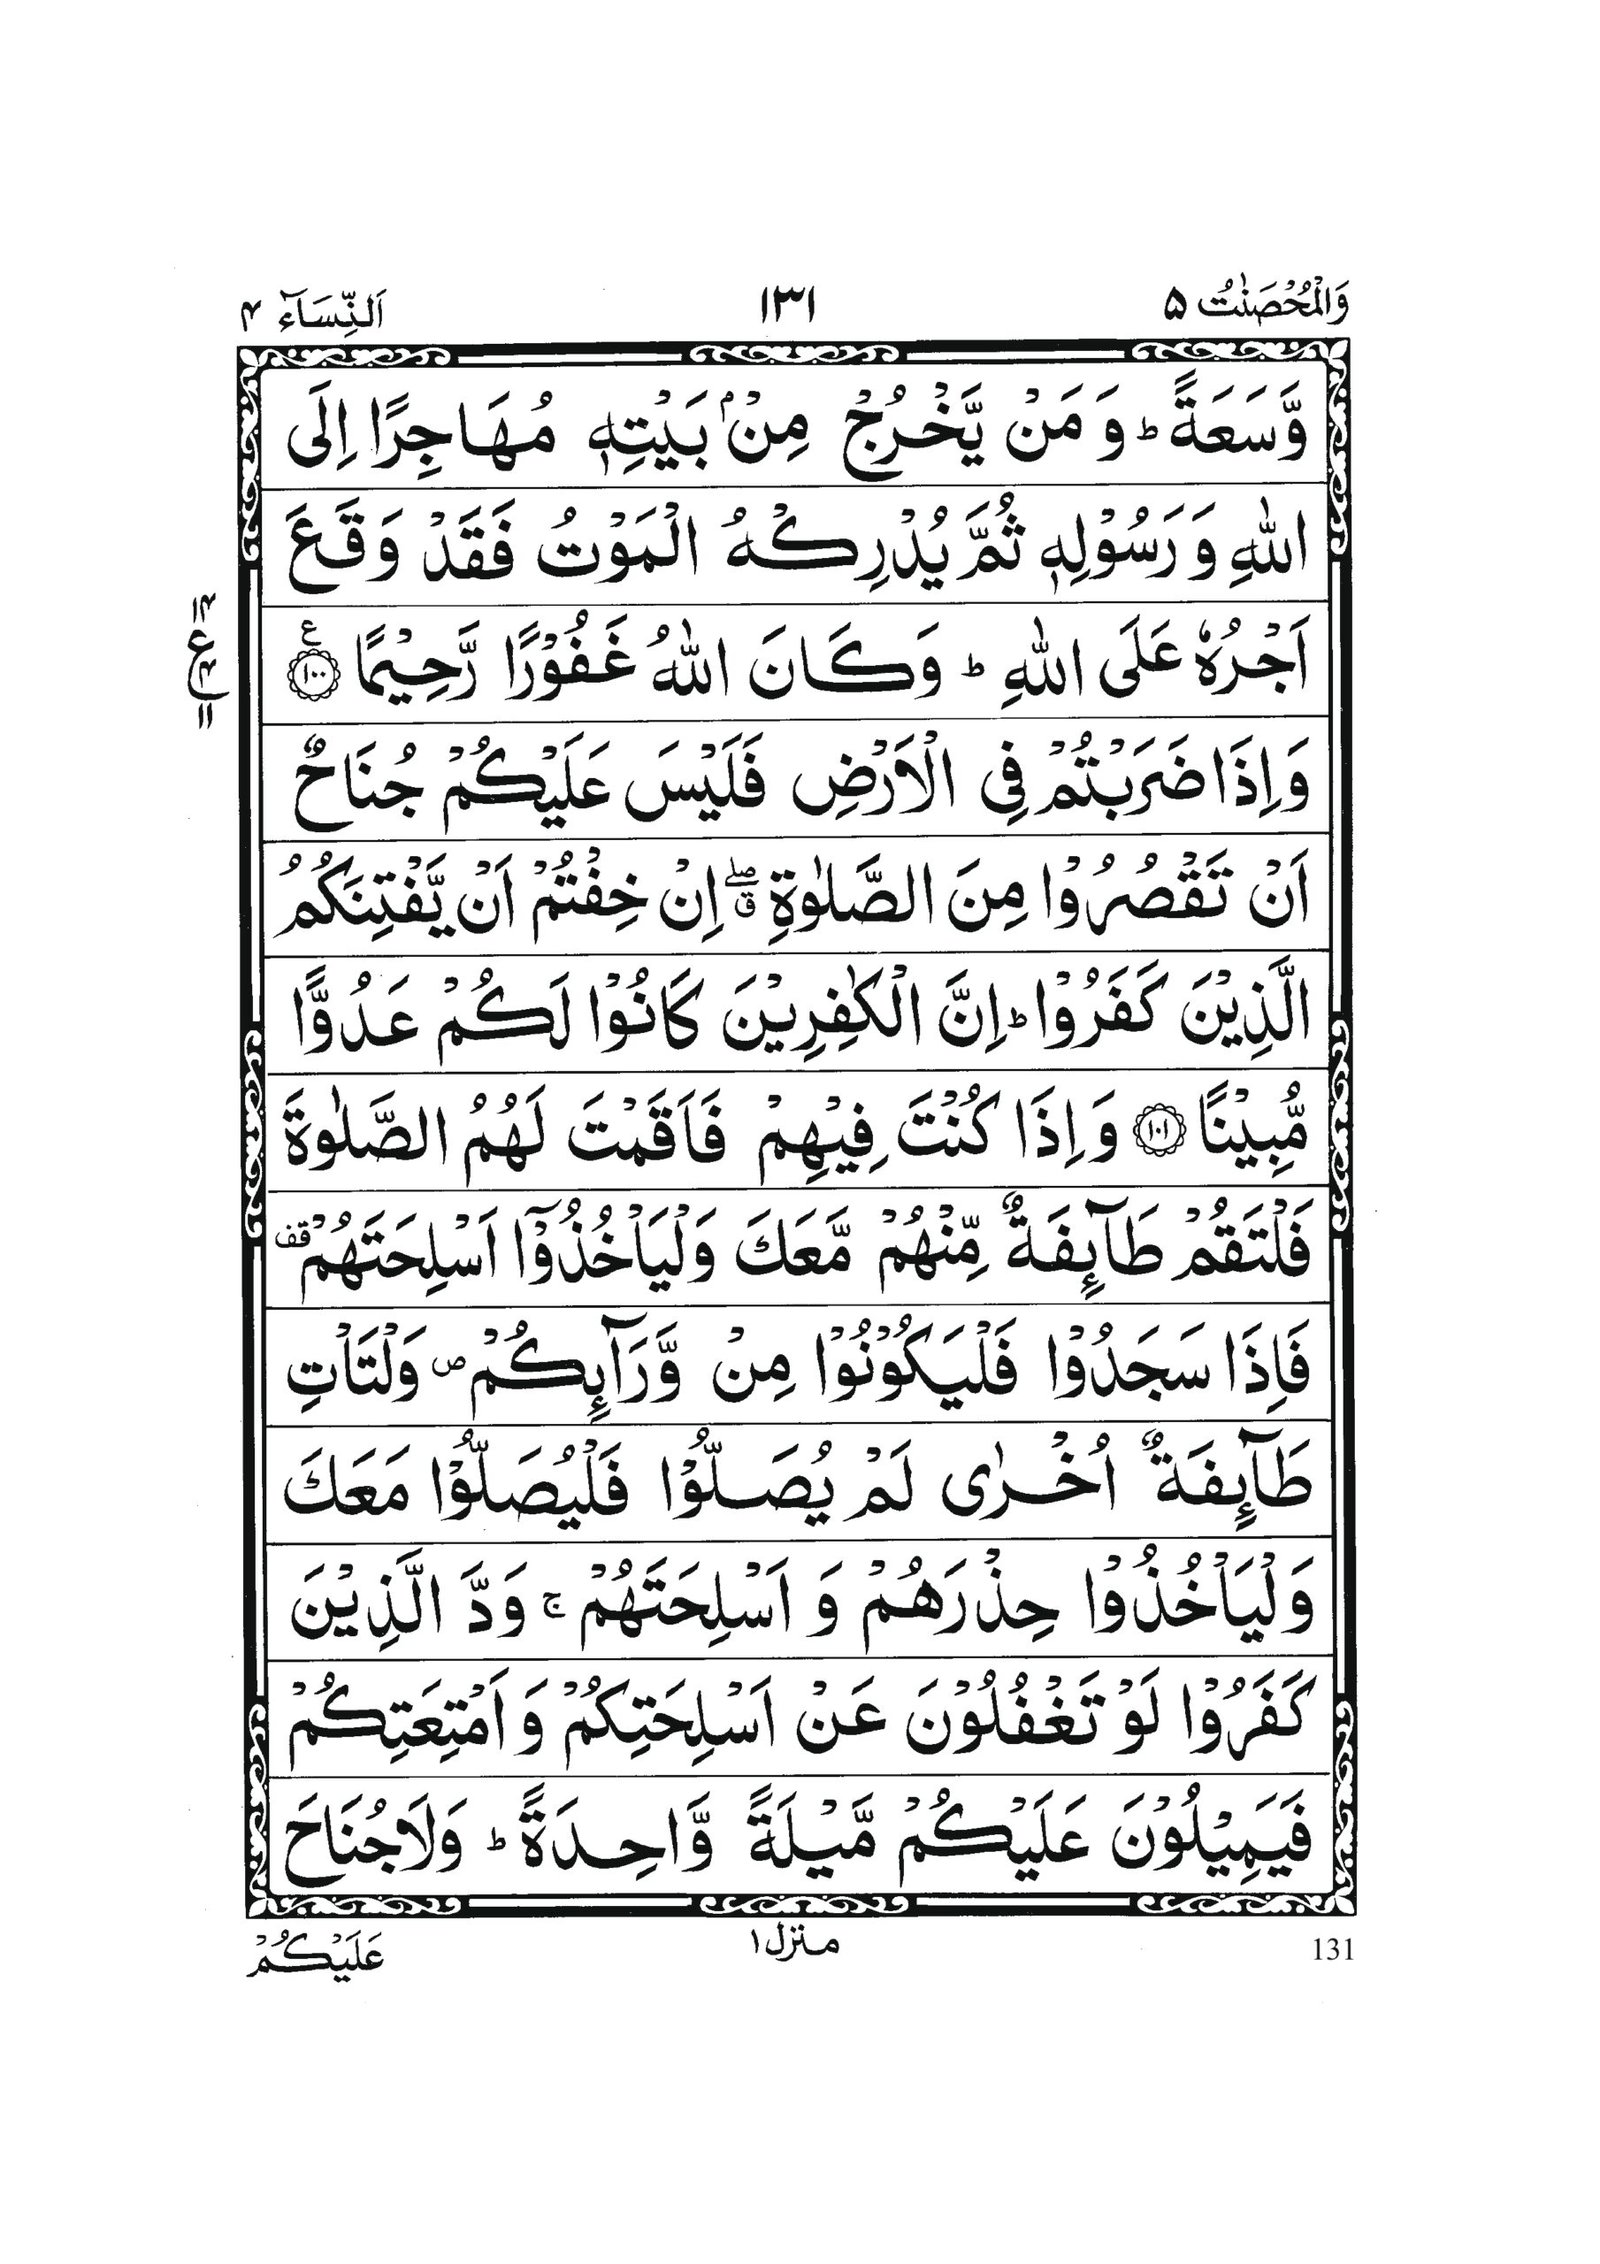 وَالْمُحْصَنٰتُ ۵ ١٣١ اَلنِّسَآء ۴
وَّسَعَةً ؕ وَ مَنْ يَّخْرُجْ مِنْۢ بَيْتِهٖ مُهَاجِرًا اِلَى
اللّٰهِ وَ رَسُوْلِهٖ ثُمَّ يُدْرِكْهُ الْمَوْتُ فَقَدْ وَقَعَ
اَجْرُهٗ عَلَى اللّٰهِ ؕ وَكَانَ اللّٰهُ غَفُوْرًا رَّحِيْمًا ١٠٠ ع
وَاِذَا ضَرَبْتُمْ فِى الْاَرْضِ فَلَيْسَ عَلَيْكُمْ جُنَاحٌ
اَنْ تَقْصُرُوْا مِنَ الصَّلٰوةِ ۖۗ اِنْ خِفْتُمْ اَنْ يَّفْتِنَكُمُ
الَّذِيْنَ كَفَرُوْا ؕ اِنَّ الْكٰفِرِيْنَ كَانُوْا لَكُمْ عَدُوًّا
مُّبِيْنًا ١٠١ وَاِذَا كُنْتَ فِيْهِمْ فَاَقَمْتَ لَهُمُ الصَّلٰوةَ
فَلْتَقُمْ طَآئِفَةٌ مِّنْهُمْ مَّعَكَ وَلْيَاْخُذُوْٓا اَسْلِحَتَهُمْ قف
فَاِذَا سَجَدُوْا فَلْيَكُوْنُوْا مِنْ وَّرَآئِكُمْ ص وَلْتَاْتِ
طَآئِفَةٌ اُخْرٰى لَمْ يُصَلُّوْا فَلْيُصَلُّوْا مَعَكَ
وَلْيَاْخُذُوْا حِذْرَهُمْ وَ اَسْلِحَتَهُمْ ۚ وَدَّ الَّذِيْنَ
كَفَرُوْا لَوْ تَغْفُلُوْنَ عَنْ اَسْلِحَتِكُمْ وَ اَمْتِعَتِكُمْ
فَيَمِيْلُوْنَ عَلَيْكُمْ مَّيْلَةً وَّاحِدَةً ؕ وَلَا جُنَاحَ
131 منزل ١ عَلَيْكُمْ